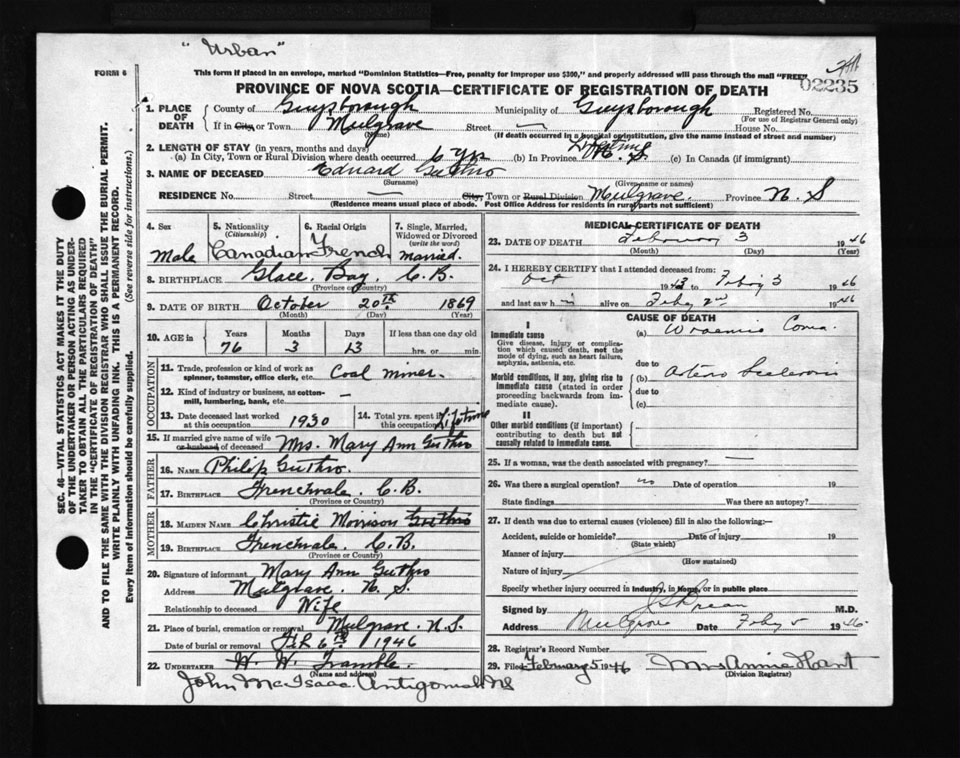 "Urban"
FORM 6
This form if placed in an envelope, marked "Dominion Statistics—Free, penalty for improper use $300," and properly addressed will pass through the mail "FREE"
02235
PROVINCE OF NOVA SCOTIA—CERTIFICATE OF REGISTRATION OF DEATH
1. PLACE OF DEATH County of Guysborough Municipality of Guysborough Registered No.
(For use of Registrar General only)
If in City or Town Mulgrave Street — House No.
(If death occurred in a hospital or institution, give the name instead of street and number)
2. LENGTH OF STAY (in years, months and days)
(a) In City, Town or Rural Division where death occurred 6 yrs (b) In Province Lifetime N. S (c) In Canada (if immigrant)
3. NAME OF DECEASED Eduard Guthro
(Surname) (Given name or names)
RESIDENCE No. Street — City, Town or Rural Division Mulgrave. Province N. S
(Residence means usual place of abode. Post Office Address for residents in rural parts not sufficient)
4. Sex Male
5. Nationality (Citizenship) Canadian
6. Racial Origin French
7. Single, Married, Widowed or Divorced (write the word) Married.
8. BIRTHPLACE Glace Bay C. B.
(Province or Country)
9. DATE OF BIRTH October 20th 1869
(Month) (Day) (Year)
10. AGE in Years 76 Months 3 Days 13 If less than one day old hrs. or min.
OCCUPATION
11. Trade, profession or kind of work as spinner, teamster, office clerk, etc. Coal Miner.
12. Kind of industry or business, as cotton-mill, lumbering, bank, etc. —
13. Date deceased last worked at this occupation 1930
14. Total yrs. spent in this occupation Lifetime
15. If married give name of wife or husband of deceased Mrs. Mary Ann Guthro
FATHER
16. NAME Philip Guthro.
17. BIRTHPLACE Frenchvale. C. B.
(Province or Country)
MOTHER
18. MAIDEN NAME Christie Morrison Guthro
19. BIRTHPLACE Frenchvale. C. B.
(Province or Country)
20. Signature of informant Mary Ann Guthro
Address Mulgrave. N. S.
Relationship to deceased Wife
21. Place of burial, cremation or removal Mulgrave. N.S.
Date of burial or removal FEB 6th 1946
22. UNDERTAKER W. W. Tramble.
(Name and address)
John McIsaac Antigonish NS
MEDICAL CERTIFICATE OF DEATH
23. DATE OF DEATH February 3 1946
(Month) (Day) (Year)
24. I HEREBY CERTIFY that I attended deceased from:
Oct 1943 to Feby 3 1946
and last saw h i alive on Feby 2nd 1946
CAUSE OF DEATH
I
Immediate cause
Give disease, injury or complication which caused death, not the mode of dying, such as heart failure, asphyxia, asthenia, etc.
(a) Uraemic Coma.
due to
Morbid conditions, if any, giving rise to immediate cause (stated in order proceeding backwards from immediate cause).
(b) Arterio Sclerosis
due to
(c)
II
Other morbid conditions (if important) contributing to death but not causally related to immediate cause.
25. If a woman, was the death associated with pregnancy? —
26. Was there a surgical operation? no Date of operation 19
State findings Was there an autopsy?
27. If death was due to external causes (violence) fill in also the following:—
Accident, suicide or homicide? Date of injury 19
(State which)
Manner of injury
(How sustained)
Nature of injury
Specify whether injury occurred in industry, in home, or in public place
Signed by M.D.
Address Mulgrave Date Feby 5 1946
28. Registrar's Record Number
29. Filed February 5 1946 Mrs Annie Hart
(Division Registrar)
SEC. 46—VITAL STATISTICS ACT MAKES IT THE DUTY
OF THE UNDERTAKER OR PERSON ACTING AS UNDER-
TAKER TO OBTAIN ALL THE PARTICULARS REQUIRED
IN THE "CERTIFICATE OF REGISTRATION OF DEATH"
AND TO FILE THE SAME WITH THE DIVISION REGISTRAR WHO SHALL ISSUE THE BURIAL PERMIT.
WRITE PLAINLY WITH UNFADING INK. THIS IS A PERMANENT RECORD.
Every item of information should be carefully supplied. (See reverse side for instructions.)